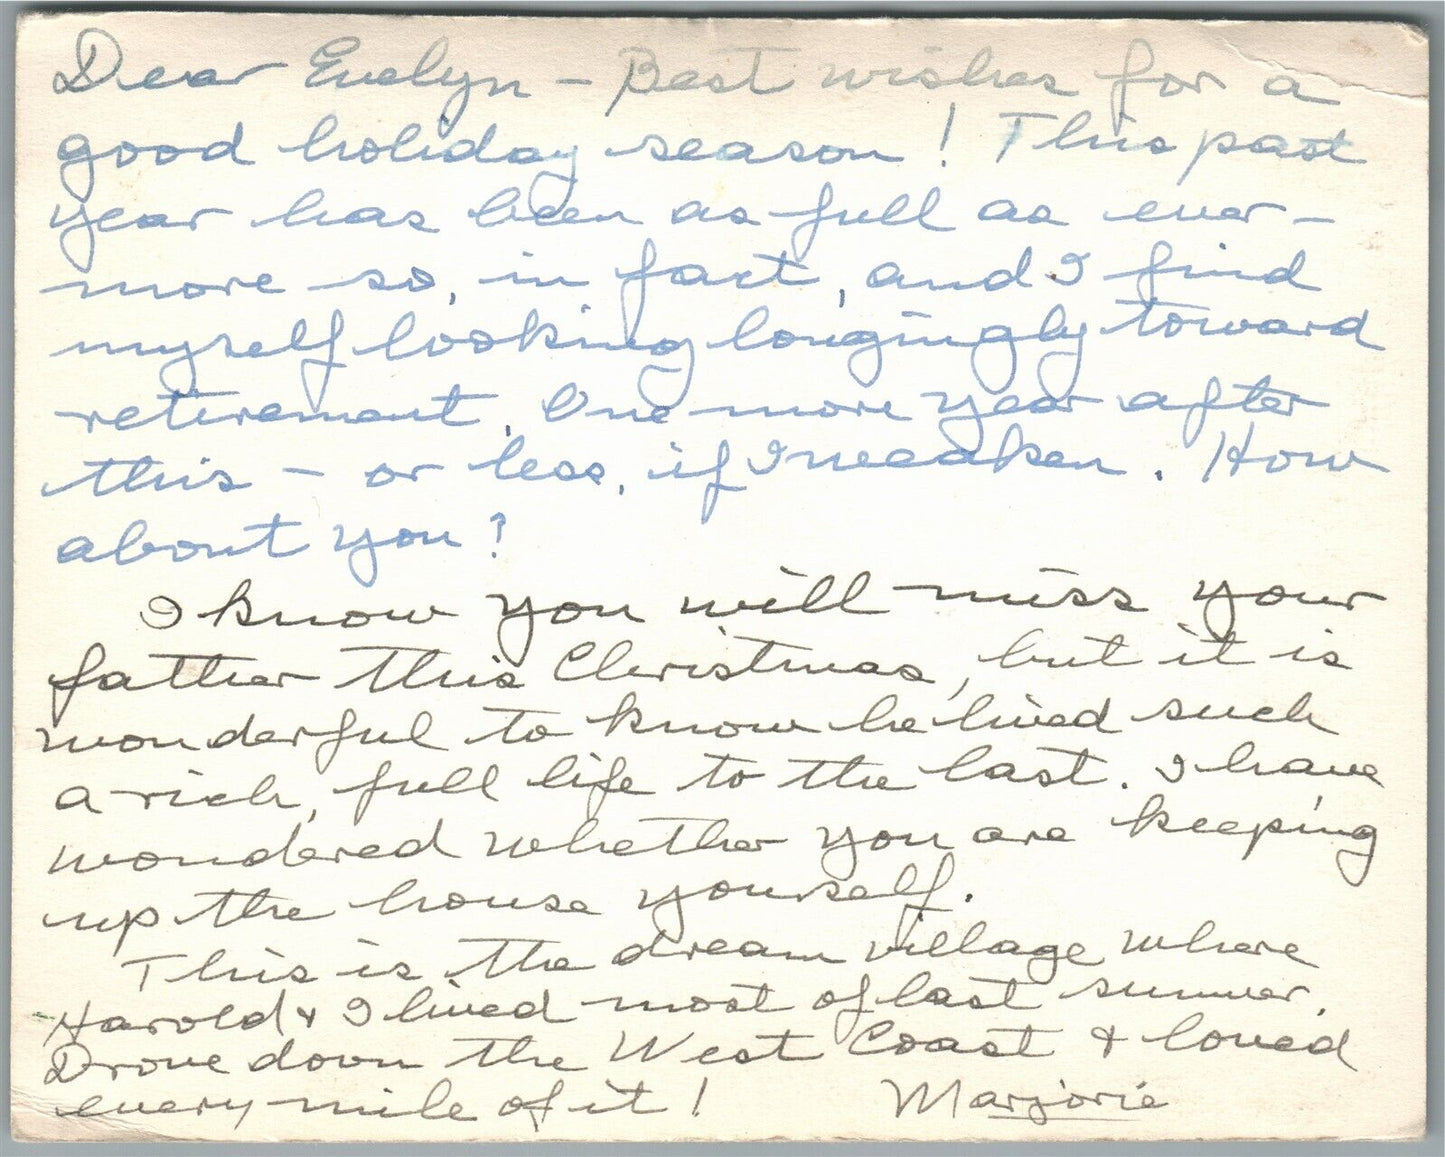 Dear Evelyn – Best wishes for a
good holiday season! This past
year has been as full as ever –
more so, in fact, and I find
myself looking longingly toward
retirement. One more year after
this – or less, if I weaken. How
about you?
I know you will miss your
father this Christmas, but it is
wonderful to know he lived such
a rich, full life to the last. I have
wondered whether you are keeping
up the house yourself.
This is the dream village where
Harold & I lived most of last summer.
Drove down the West Coast & loved
every mile of it! Marjorie